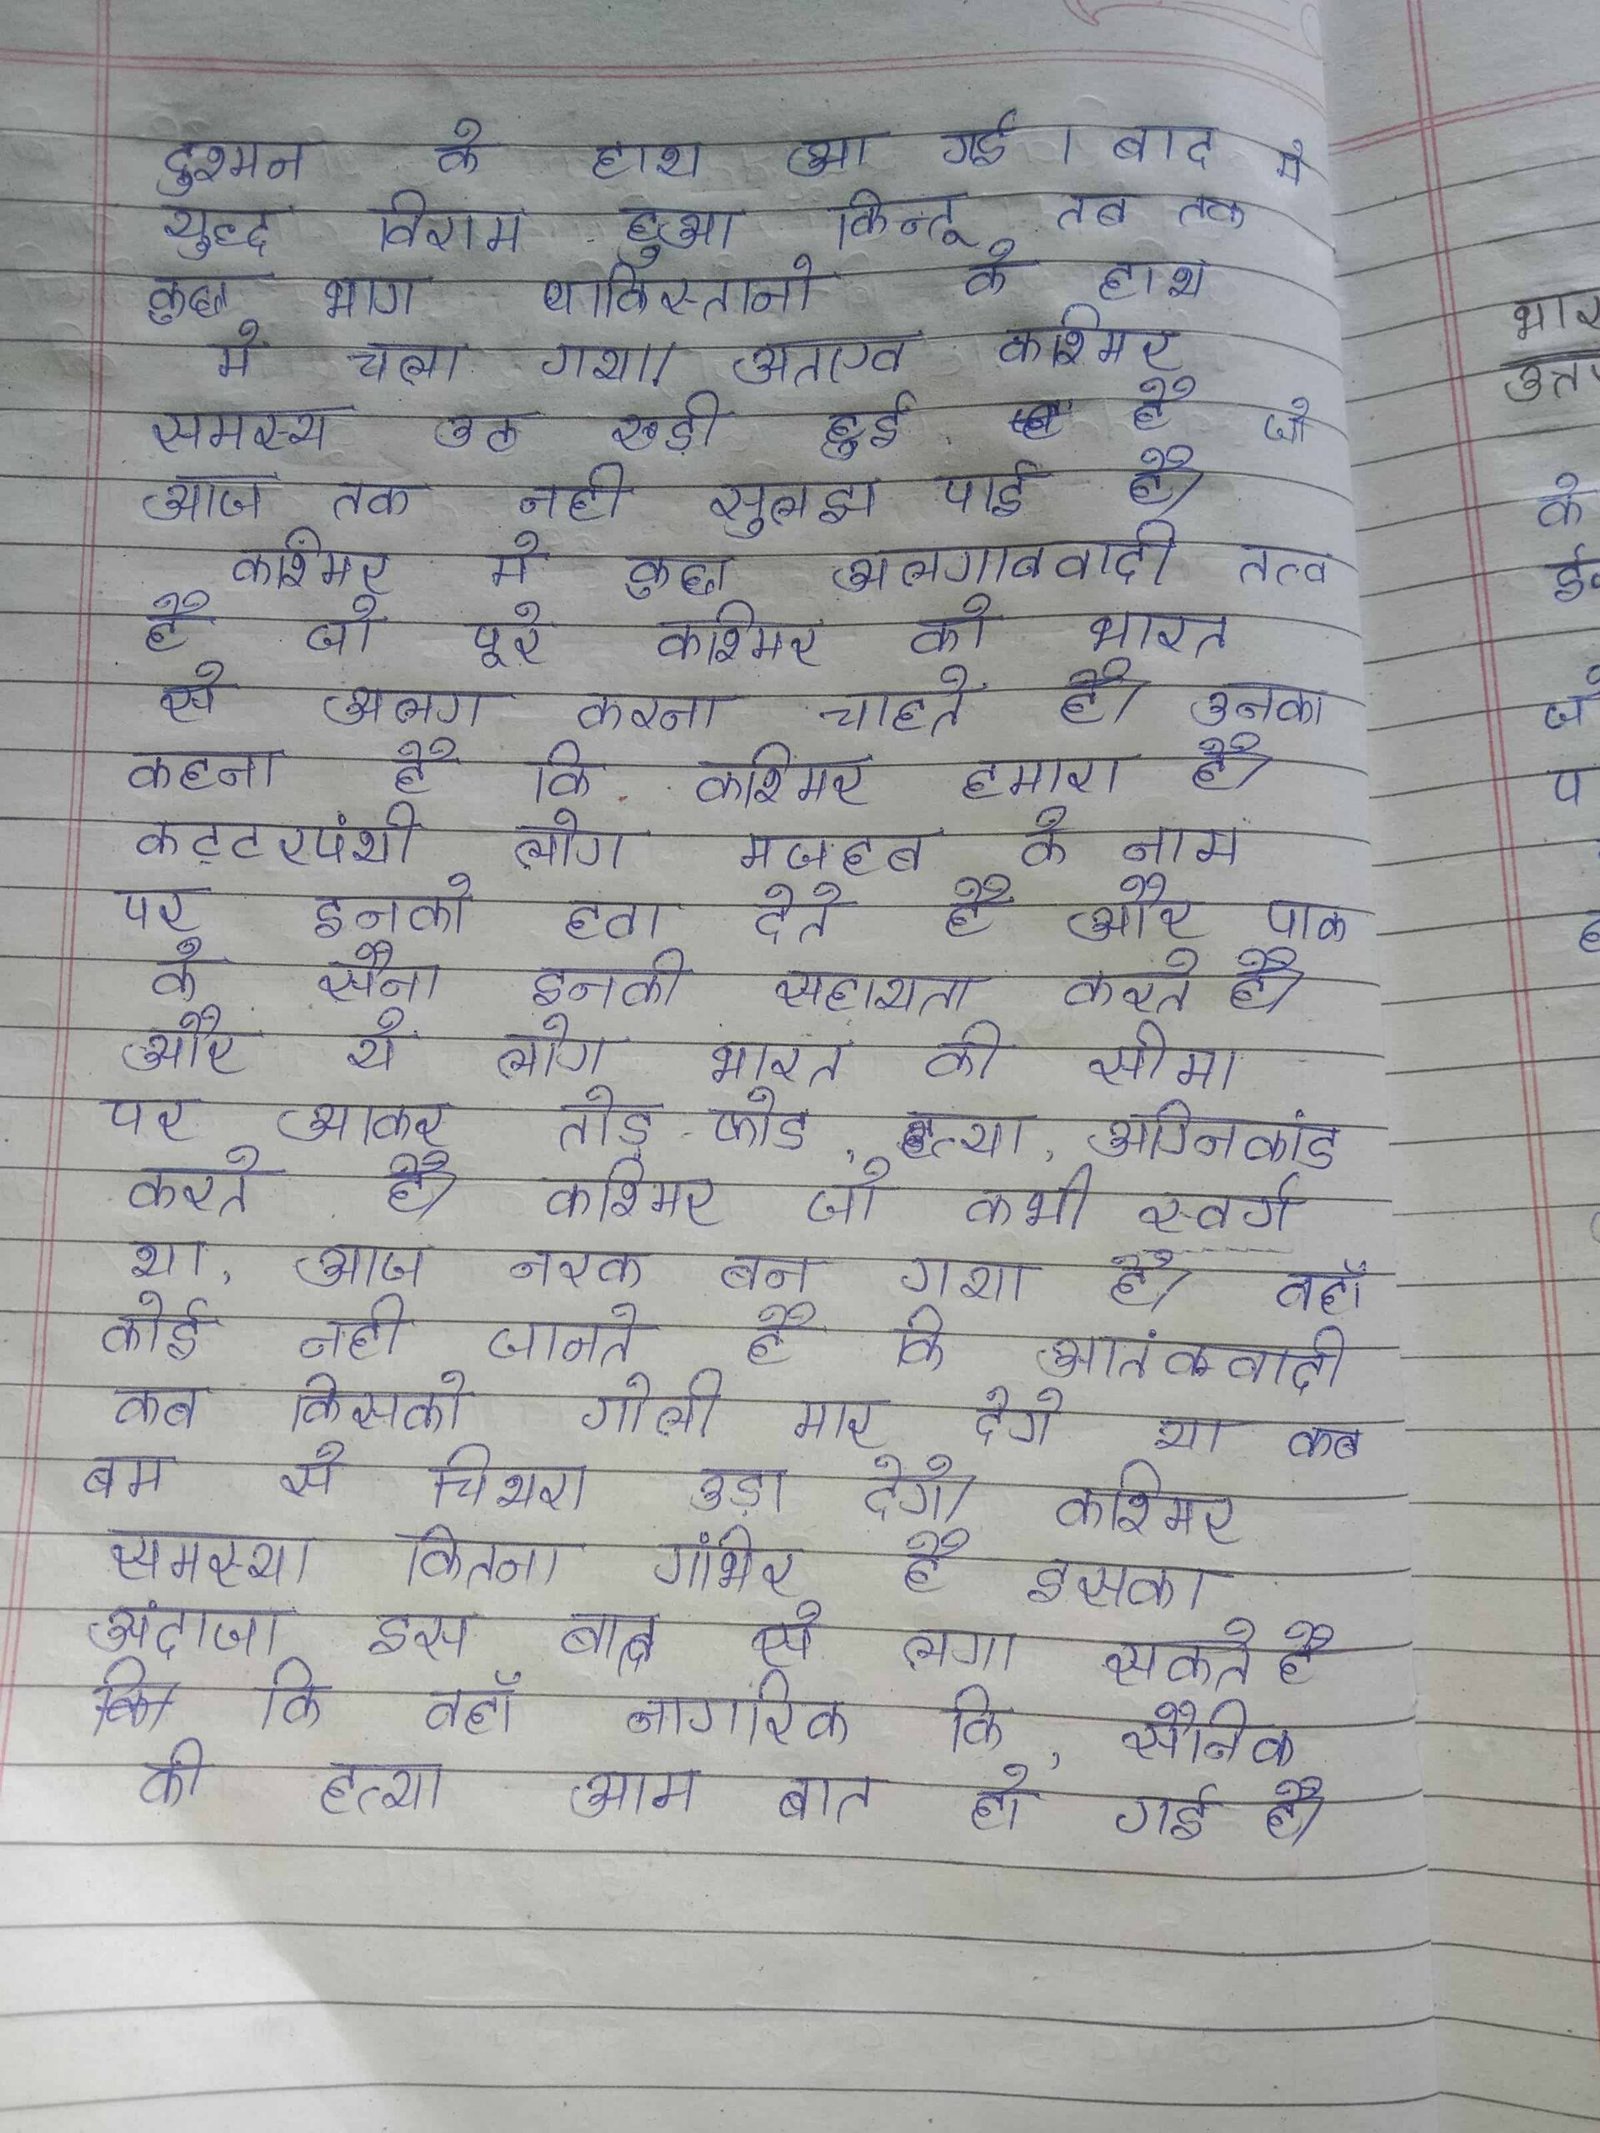 दुश्मन के हाथ आ गई। बाद मे
युद्द विराम हुआ किन्तू तब तक
कुछ भाग पाकिस्तानो के हाथ
मे चला गया। अतएव कश्मिर
समस्य उठ खड़ी हुई है जो
आज तक नही सुलझ पाई है।
कश्मिर मे कुछ अलगाववादी तत्व
है जो पूरे कश्मिर को भारत
से अलग करना चाहते है। उनका
कहना है कि कश्मिर हमारा है।
कट्टरपंथी लोग मजहब के नाम
पर इनको हवा देते है और पाक
के सैना इनकी सहायता करते है।
और ये लोग भारत की सीमा
पर आकर तोड़-फोड, हत्या, अग्निकांड
करते है। कश्मिर जो कभी स्वर्ग
था, आज नरक बन गया है। वहाँ
कोई नही जानते है कि आतंकवादी
कब किसको गोली मार देगे या कब
बम से चिथरा उड़ा देगे। कश्मिर
समस्या कितना गंभिर है इसका
अंदाजा इस बात से लगा सकते है
कि वहाँ नागरिक कि, सैनिक
की हत्या आम बात हो गई है।
भार
उत्त
के
जो
प
ह